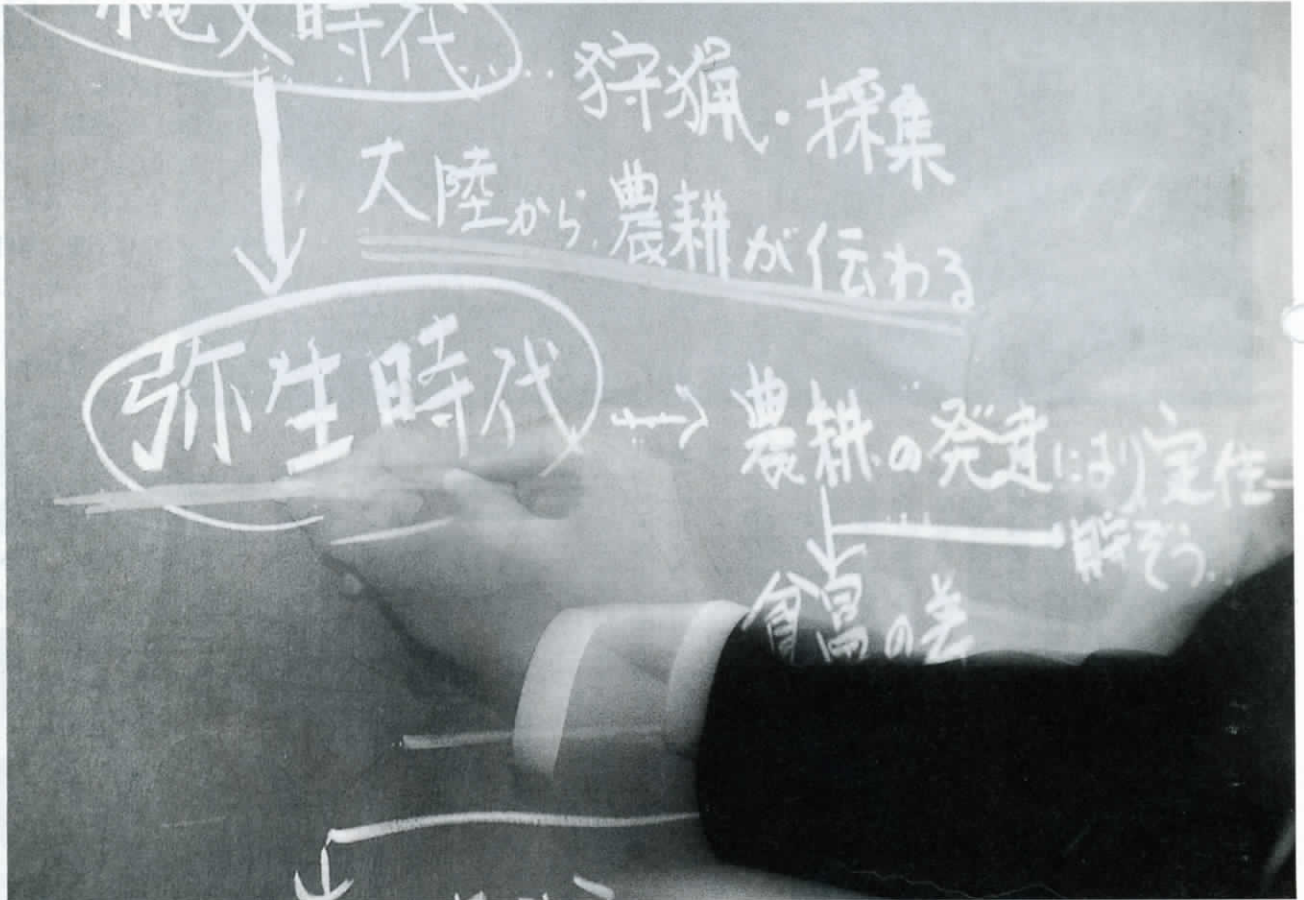 縄文時代…狩猟・採集
大陸から農耕が伝わる
弥生時代→農耕の発達により定住
貯ぞう
貧富の差